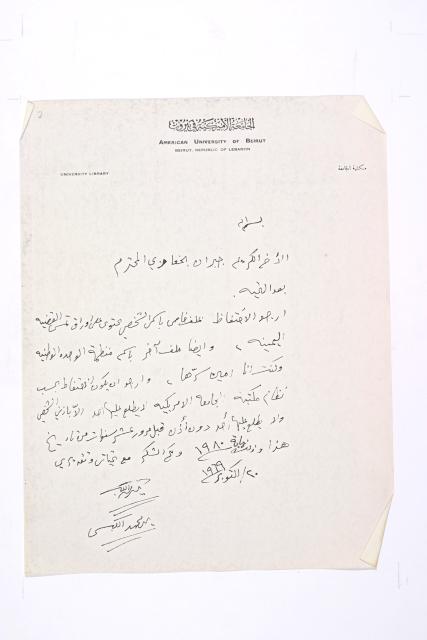 الجامعة الأميركية في بيروت
AMERICAN UNIVERSITY OF BEIRUT
BEIRUT, REPUBLIC OF LEBANON
UNIVERSITY LIBRARY
مكتبة الجامعة
الأخ الكريم جبران المحترم
بعد التحية،
ارجو الاحتفاظ بملف خاص باسمي الشخصي يحتوي على اوراق تمس القضية
اليمنية، وايضا ملف آخر باسم منظمة الوحدة الوطنية
وكنت انا امين سرها، وارجو ان يكون الاحتفاظ بحسب
نظام مكتبة الجامعة الامريكية لا يطلع عليها أحد الا بإذن
ولا يطلع عليها أحد دون أذن قبل مرور عشر سنوات من تاريخ
هذا ١٩٨٠ ولكم الشكر مع تحياتي وتقديري
٢٠/اكتوبر ١٩٦٩